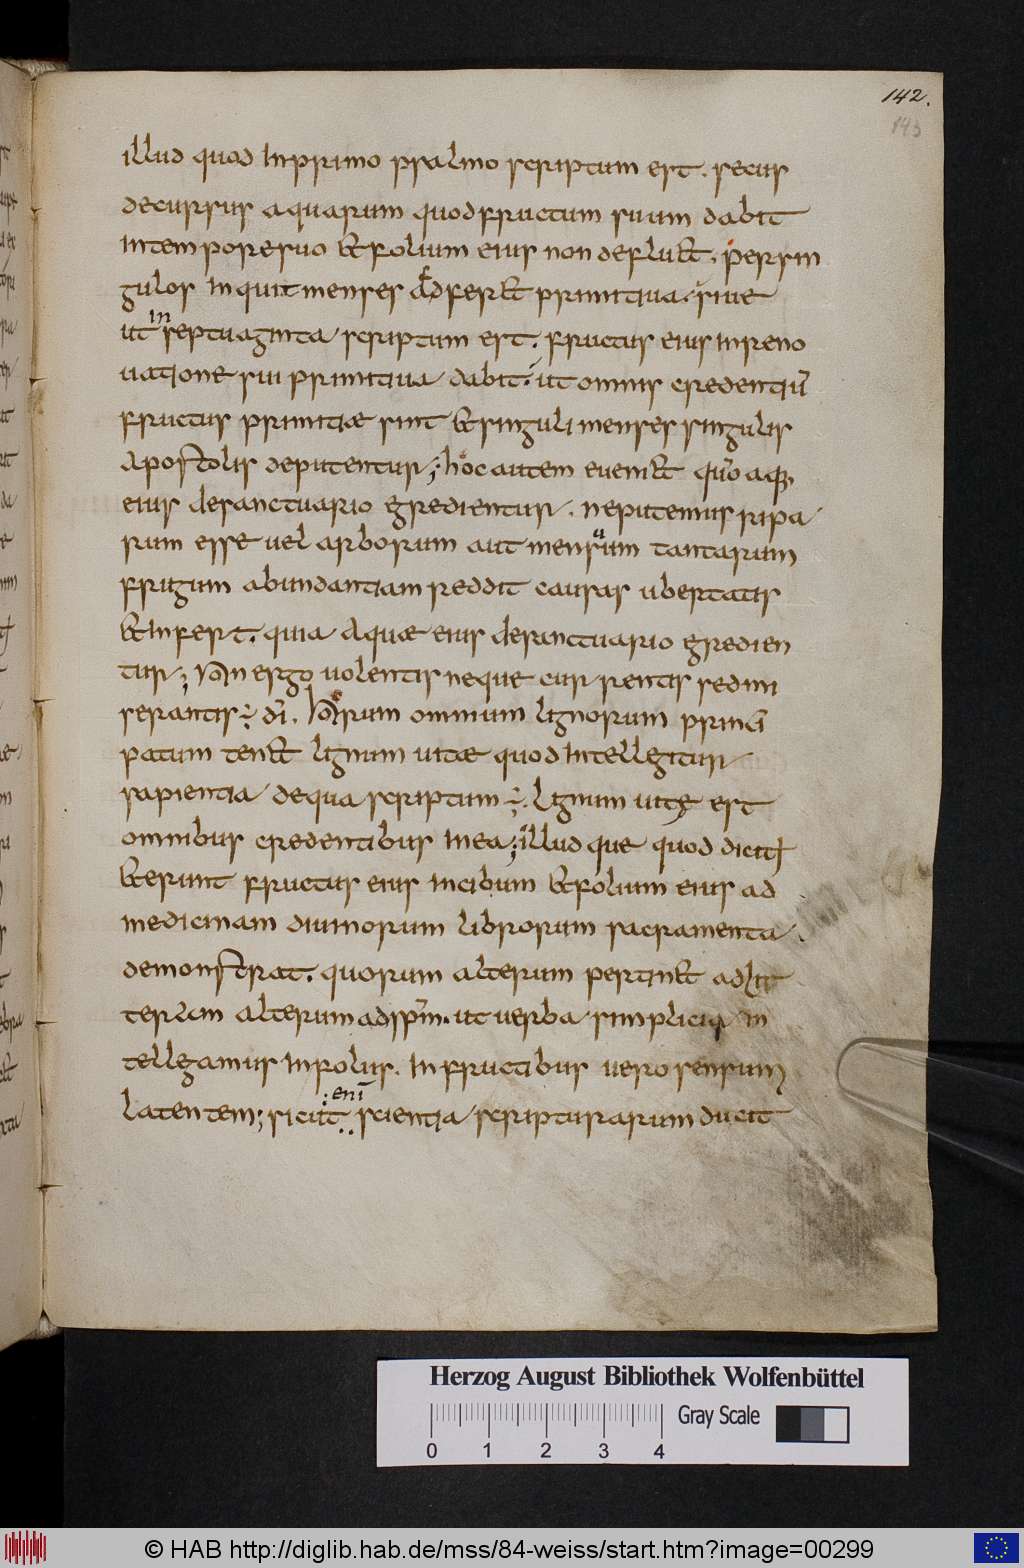 142.
143
illud quod Inprimo psalmo scriptum est. secus
decursus aquarum quodfructum suum dabit
Intemporesuo &folium eius non deflu&. persin
gulos Inquit menses adfer& primitiua. siue
in
ut septuaginta scriptum est. fructus eius Inreno
uatione sui primitiua dabit. ut omnis credentiū
fructus primitiæ sint &singuli menses singulis
apostolis deputentur; hoc autem eueni& quō aq;
eius desanctuario egredientur. neputemus ripa
rum esse uel arborum aut mensuum tantarum
frugum abundantiam reddit causas ubertatis
&Infert. quia aquæ eius desanctuario egredien
tur; Non ergo uolentis neque currentis sedmi
serantis ÷ dī. horum omnium lignorum princi
patum ten& lignum uitæ quod Intellegitur
sapientia dequa scriptum ÷. Lignum uitę est
omnibus credentibus Inea; illudque quod dicit
&erunt fructus eius Incibum &folium eius ad
medicinam diuinorum librorum sacramenta
demonstrat. quorum alterum pertin& adlit
teram alterum adspm̄. ut uerba simplicia in
tellegamus Infoliis. Infructibus uero sensum
enī
latentem; sicut scientia scripturarum ducit
Herzog August Bibliothek Wolfenbüttel
Gray Scale
0 1 2 3 4
© HAB http://diglib.hab.de/mss/84-weiss/start.htm?image=00299